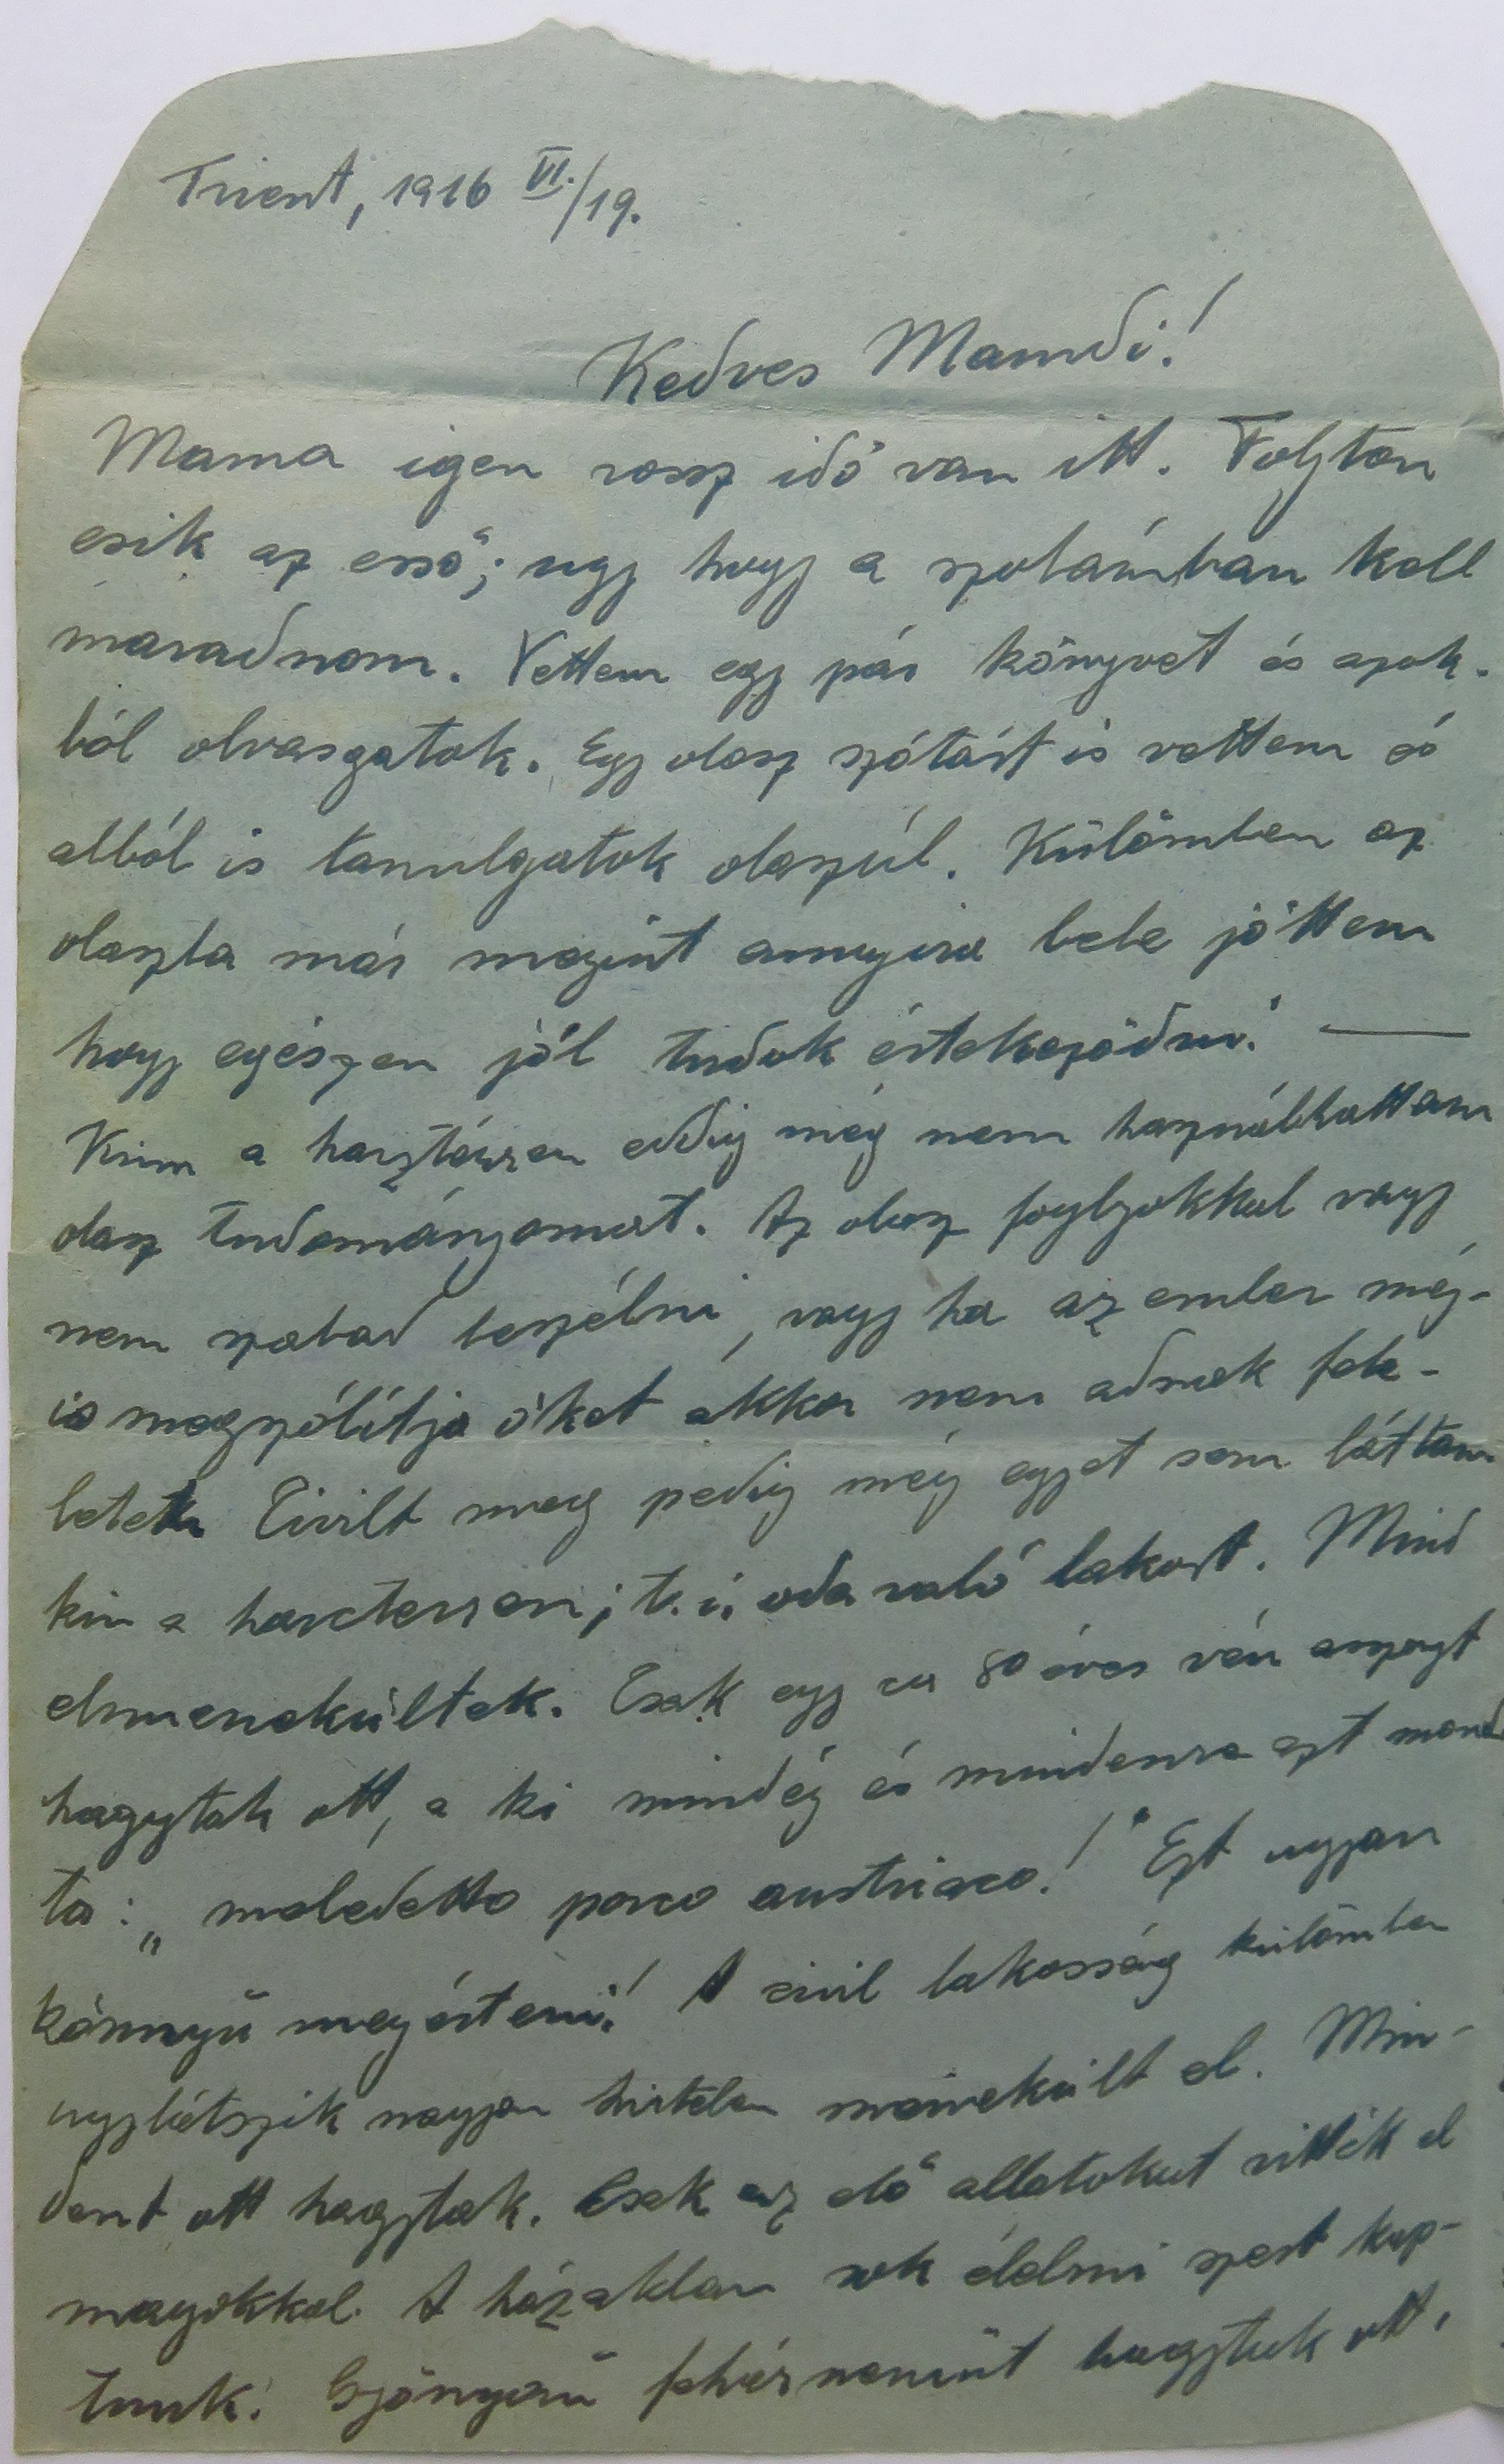 Trient, 1916 VI./19.
Kedves Mamdi!
Mama igen rossz idő van itt. Folyton
esik az eső; ugy hogy a szobámban kell
maradnom. Vettem egy pár könyvet és azok-
ból olvasgatok. Egy olasz szótárt is vettem és
abból is tanulgatok olaszúl. Külömben az
olaszba már megint annyira bele jöttem
hogy egészen jól tudok értekeződni! —
Kinn a harztéren eddig még nem használhattam
olasz tudományomat. Az olasz foglyokkal vagy
nem szabad beszélni, vagy ha az ember még-
is megszólítja őket akkor nem adnak fele-
letet. Civilt meg pedig még egyet sem láttam
kin a harcterren; t. i. oda való lakost. Mind
elmenekültek. Csak egy ca 80 éves vén asszonyt
hagytak ott, a ki mindég és mindenre ezt mond
ta: „maledetto porco austriaco!" Ezt ugyan
könnyü megérteni! A civil lakosság külömben
ugylátszik nagyon hirtelen menekült el. Min-
dent ott hagytak. Csak az élő allatokat vitték el
magokkal. A házakban sok élelmi szert kap-
tunk! Gyönyörü fehérnemüt hagytak ott,